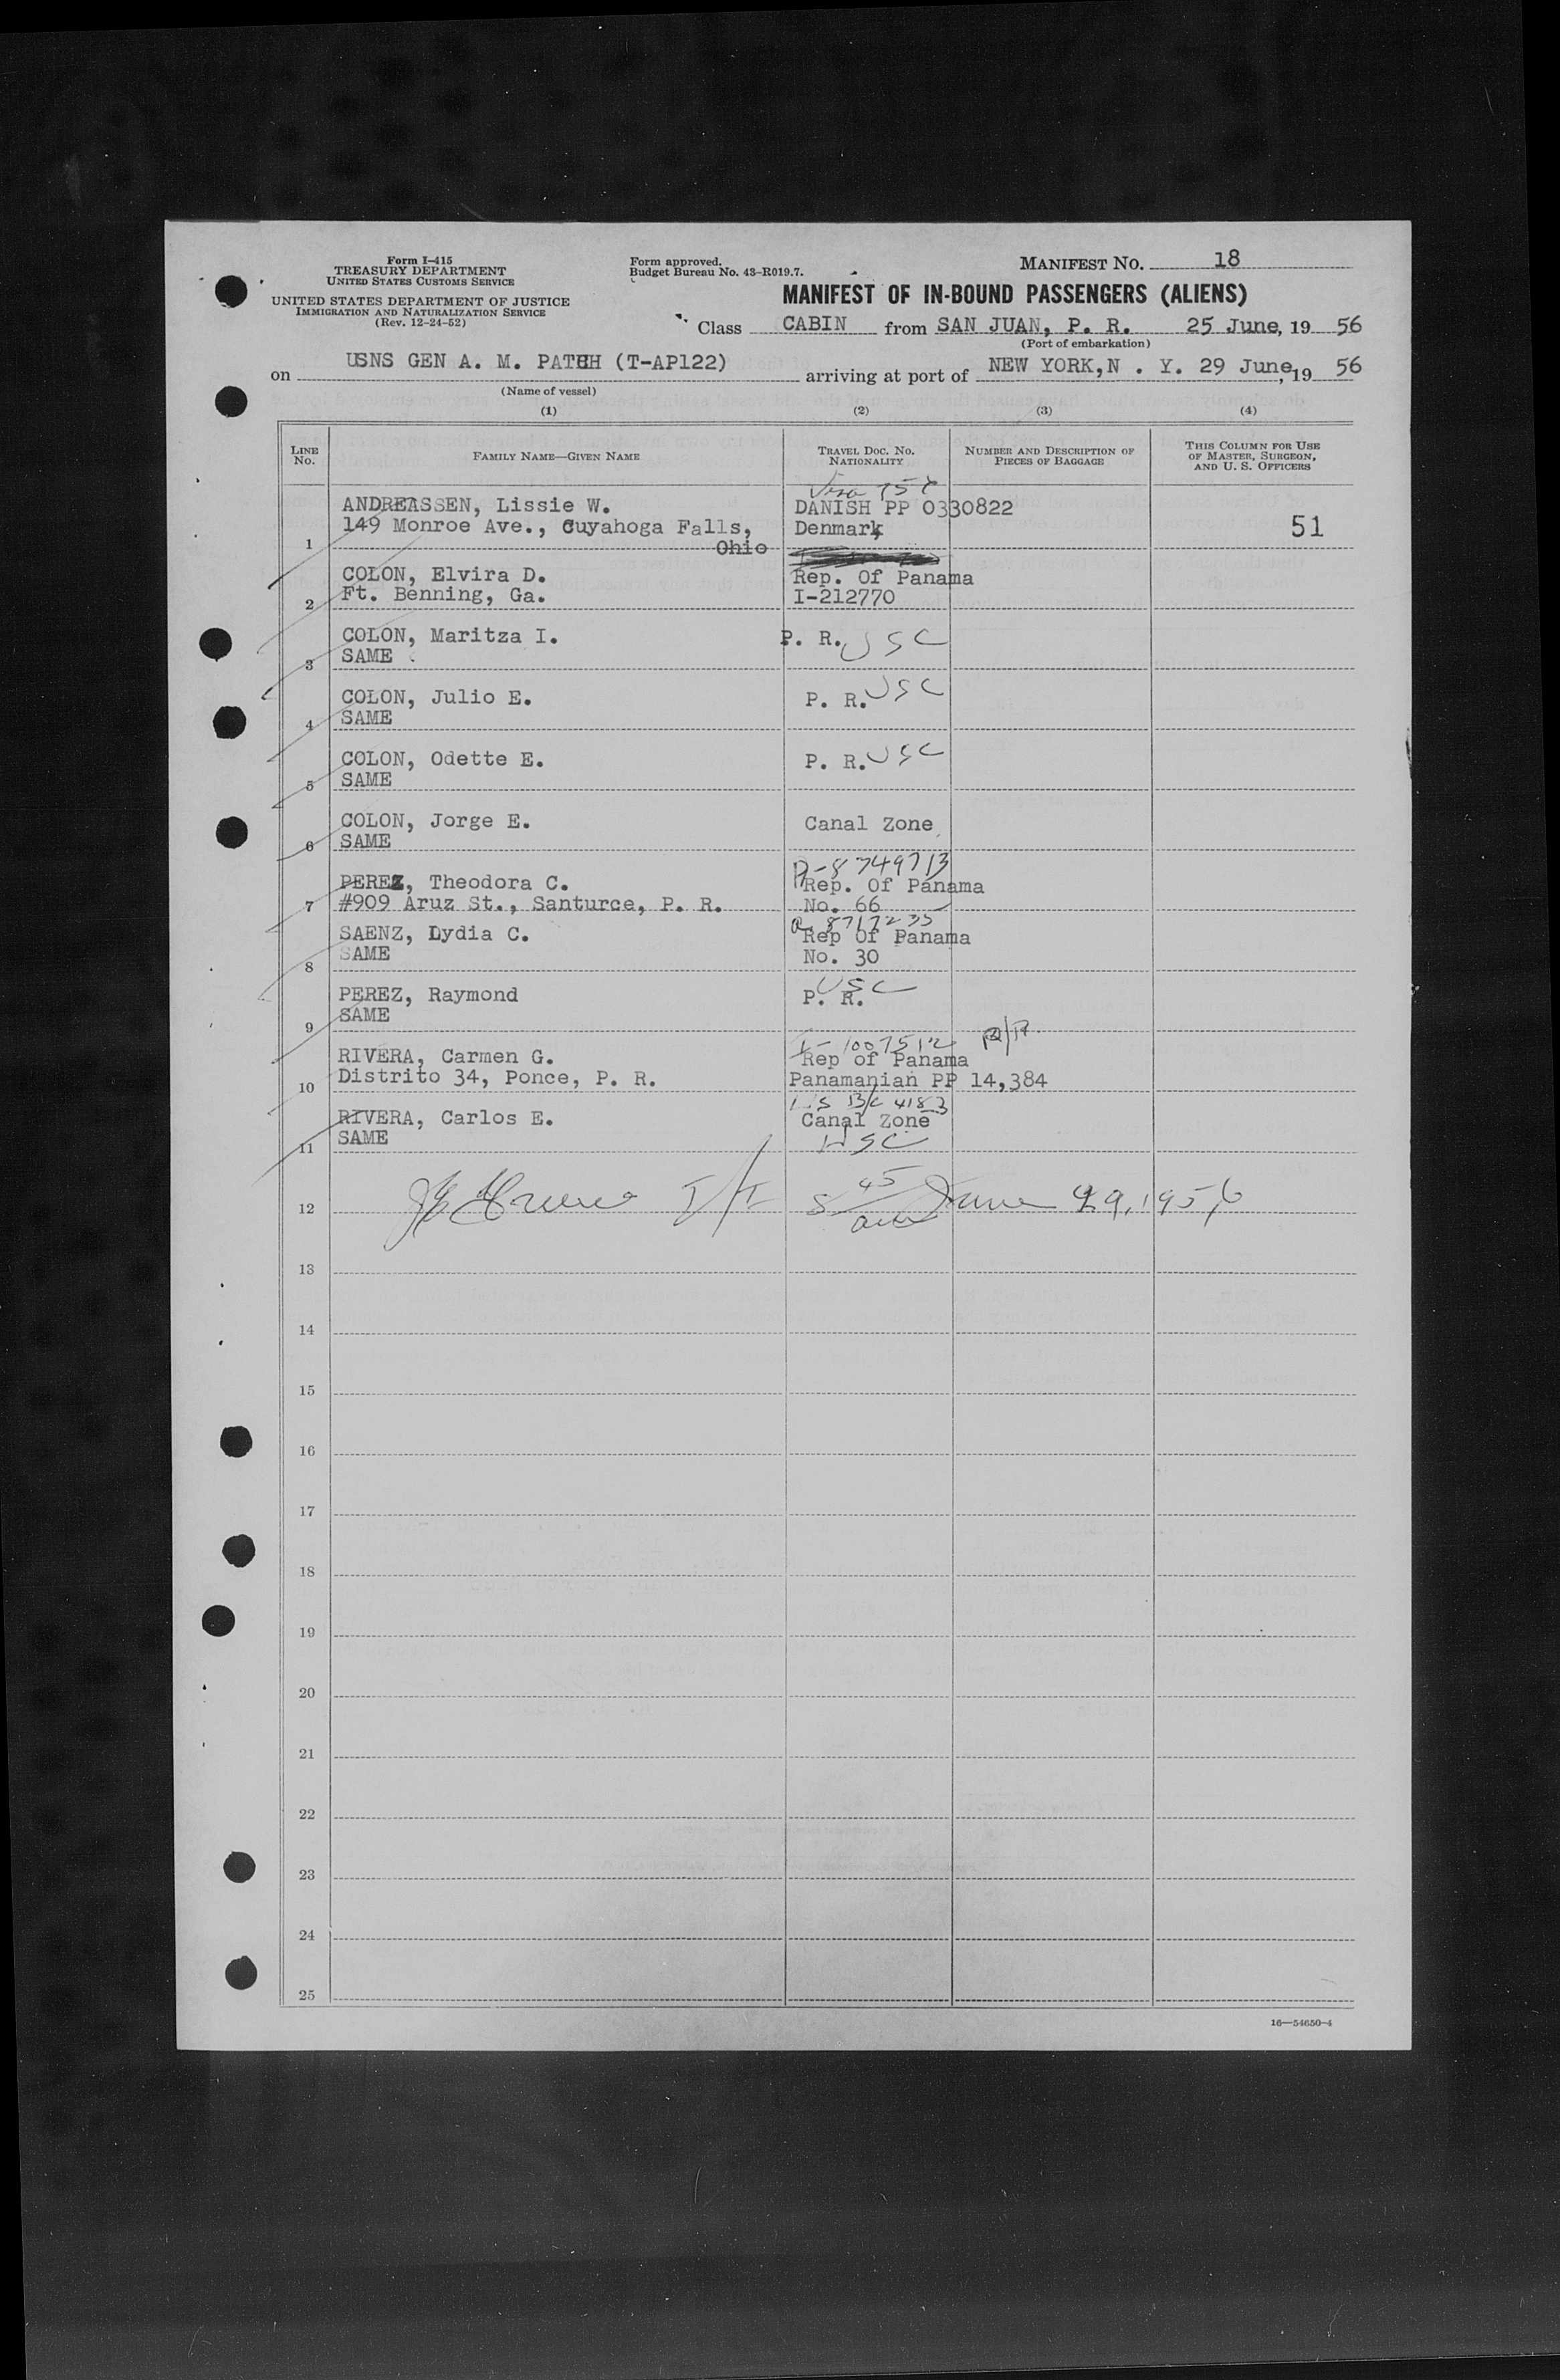 Form I-415
TREASURY DEPARTMENT
UNITED STATES CUSTOMS SERVICE
UNITED STATES DEPARTMENT OF JUSTICE
IMMIGRATION AND NATURALIZATION SERVICE
(Rev. 12-24-52)
Form approved.
Budget Bureau No. 43-R019.7.
MANIFEST NO. 18
MANIFEST OF IN-BOUND PASSENGERS (ALIENS)
Class CABIN from SAN JUAN, P. R. 25 June, 19 56
(Port of embarkation)
on USNS GEN A. M. PATCH (T-AP122) arriving at port of NEW YORK,N . Y. 29 June, 19 56
(Name of vessel)
(1) (2) (3) (4)
LINE NO.
FAMILY NAME—GIVEN NAME
TRAVEL DOC. NO. NATIONALITY
NUMBER AND DESCRIPTION OF PIECES OF BAGGAGE
THIS COLUMN FOR USE OF MASTER, SURGEON, AND U. S. OFFICERS
Visa
ANDREASSEN, Lissie W. DANISH PP 0330822
149 Monroe Ave., Cuyahoga Falls, Denmark 51
1 Ohio
COLON, Elvira D. Rep. Of Panama
2 Ft. Benning, Ga. I-212770
COLON, Maritza I. P. R. USC
3 SAME
COLON, Julio E. P. R. USC
4 SAME
COLON, Odette E. P. R. USC
5 SAME
COLON, Jorge E. Canal Zone
6 SAME
R-8749713
PEREZ, Theodora C. Rep. Of Panama
7 #909 Aruz St., Santurce, P. R. No. 66
SAENZ, Lydia C. Rep Of Panama
8 SAME No. 30
USC
PEREZ, Raymond P. R.
9 SAME
I-1007512
RIVERA, Carmen G. Rep of Panama
10 Distrito 34, Ponce, P. R. Panamanian PP 14,384
B/C 4183
RIVERA, Carlos E. Canal Zone
11 SAME USC
12 I/I June 29, 1956
13
14
15
16
17
18
19
20
21
22
23
24
25
16—54650-4